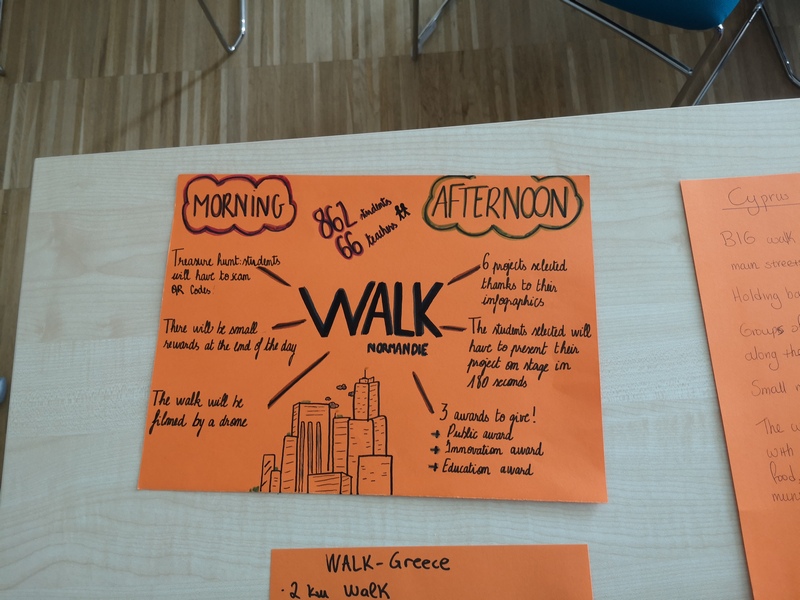 MORNING
862 students
66 teachers
AFTERNOON
Treasure hunt: students
will have to scan
QR Codes
There will be small
rewards at the end of the day
The walk will be
filmed by a drone
WALK
NORMANDIE
6 projects selected
thanks to their
infographics
The students selected will
have to present their
project on stage in
180 seconds
3 awards to give!
→ Public award
→ Innovation award
→ Education award
Cyprus
BIG walk
main street
Holding
Groups
along
Small
The
with
food,
WALK - Greece
· 2 km walk